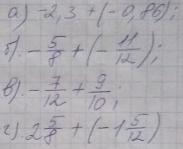 а) -2,3 + (-0,86);
б). -5/8 + (-11/12);
в). -7/12 + 9/10;
г). 2 5/8 + (-1 5/12)